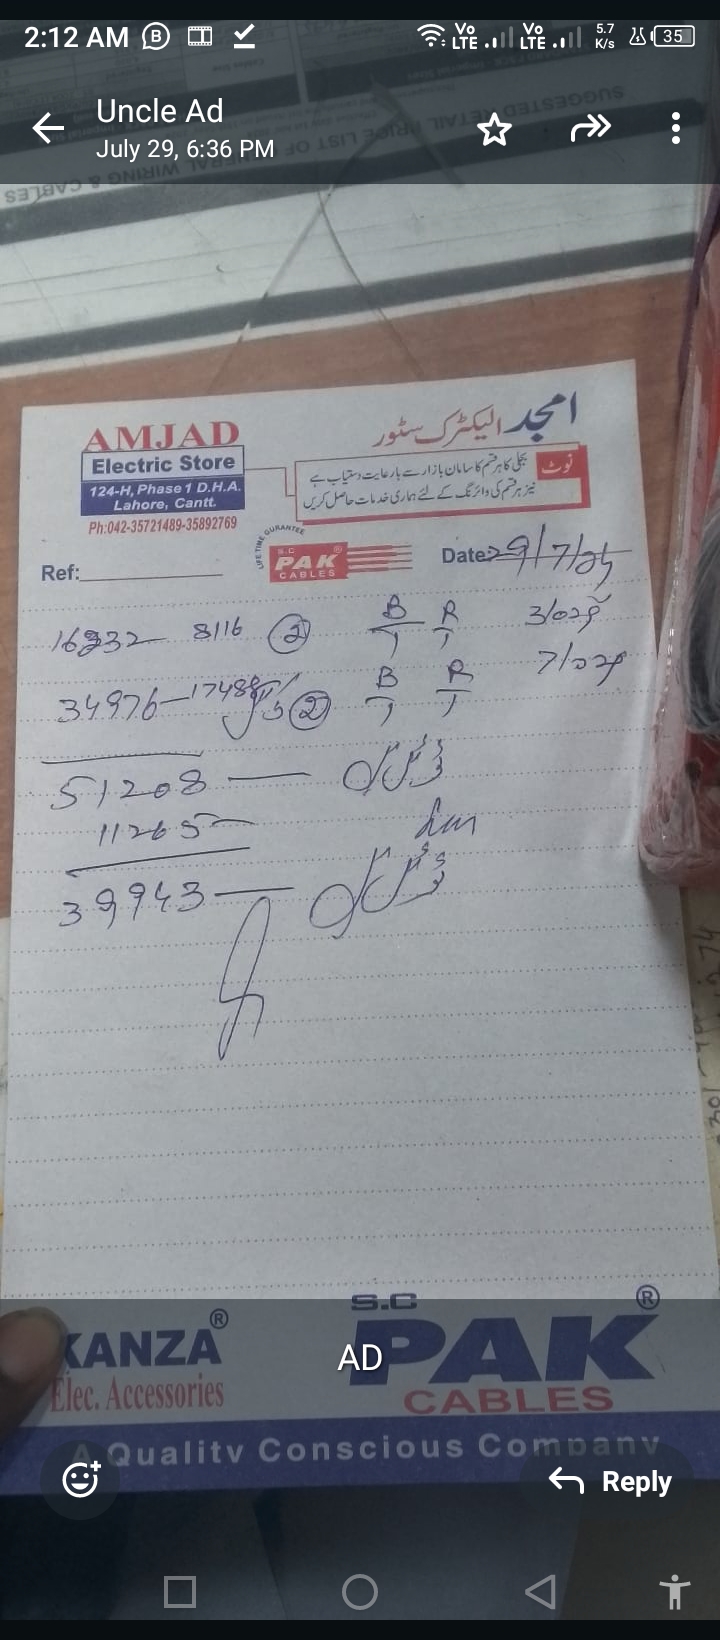 2:12 AM
Vo LTE Vo LTE 5.7 K/s 35
Uncle Ad
July 29, 6:36 PM
SUGGESTED RETAIL PRICE LIST OF GENERAL WIRING & CABLES
AMJAD
Electric Store
124-H, Phase 1 D.H.A.
Lahore, Cantt.
Ph:042-35721489-35892769
امجد الیکٹرک سٹور
نوٹ
بجلی کا ہر قسم کا سامان بازار سے بارعایت دستیاب ہے
نیز ہر قسم کی وائرنگ کے لئے ہماری خدمات حاصل کریں
LIFE TIME GURANTEE
S.C
PAK®
CABLES
Ref:
Date: 29/7/24
16232 8116 2 B R 3/029
1 1
34976 17488 2 B R 7/029
1 1
51208 ٹوٹل
11265
39943 ٹوٹل
KANZA®
Elec. Accessories
S.C
PAK®
CABLES
AD
A Quality Conscious Company
Reply